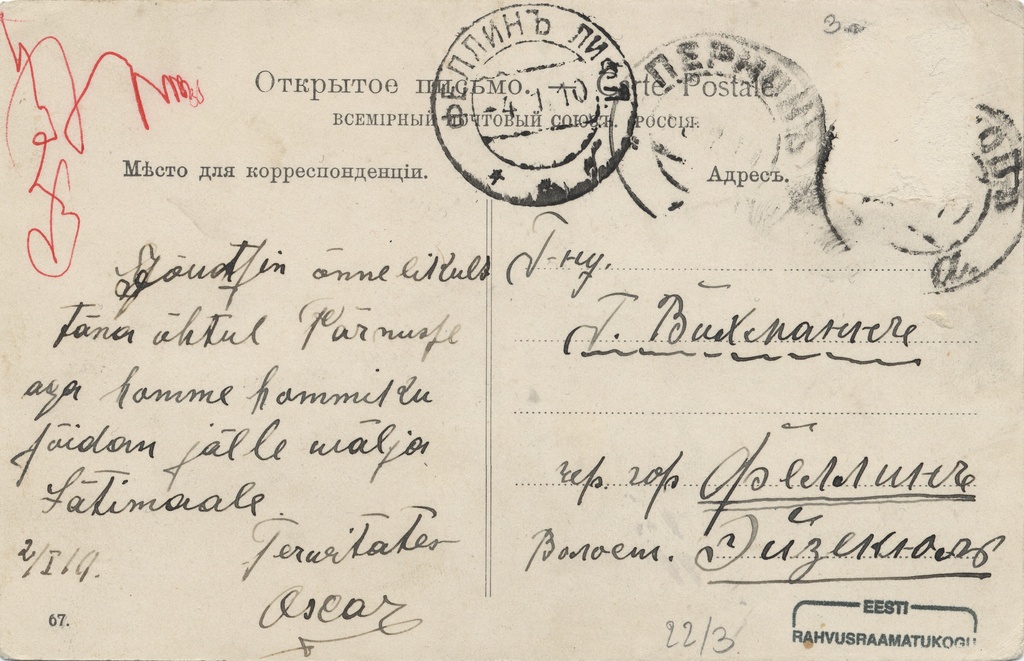 Открытое письмо. Carte Postale
ВСЕМІРНЫЙ ПОЧТОВЫЙ СОЮЗЪ. РОССІЯ.
Мѣсто для корреспонденціи.
Адресъ.
ФЕЛЛИНЪ ЛИФЛ
-4.1.10
ПЕРНОВЪ
Jõudsin õnnelikult
täna õhtul Pärnusse
aga homme hommiku
sõidan jälle wälja
Lätimaale.
Terwitates
Oscar
2/I 19.
67.
Г-ну.
Г. Вихманнъ
чер. гор Феллинъ
Волост. Эйзекюль
22/3
EESTI
RAHVUSRAAMATUKOGU